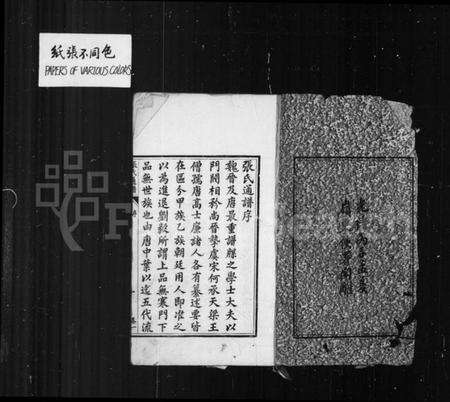 紙張不同色
PAPERS OF VARIOUS COLORS
張氏通譜序
魏晉及唐最重譜牒之學士大夫以
門閥相矜尚晉摯虞宋何承天梁王
僧孺唐高士廉諸人各有纂述要皆
在區分甲族乙族朝廷用人即准之
以為進退劉毅所謂上品無寒門下
品無世族也由唐中葉以迄五代流